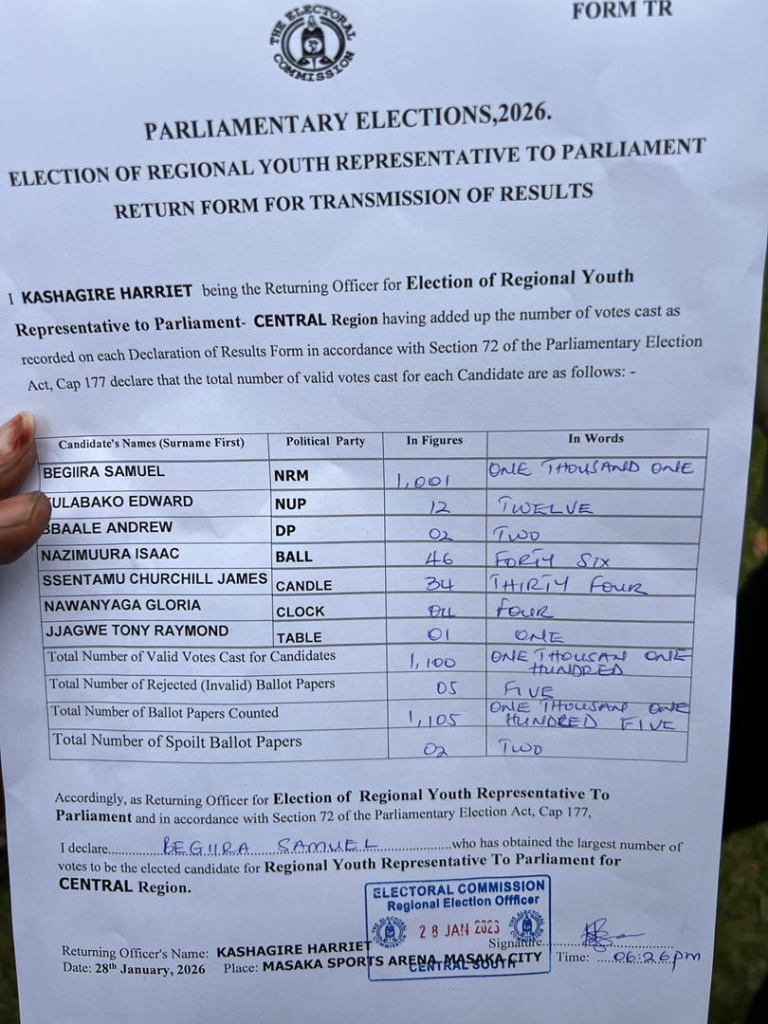 FORM TR
THE ELECTORAL COMMISSION
PARLIAMENTARY ELECTIONS,2026.
ELECTION OF REGIONAL YOUTH REPRESENTATIVE TO PARLIAMENT
RETURN FORM FOR TRANSMISSION OF RESULTS
I KASHAGIRE HARRIET being the Returning Officer for Election of Regional Youth
Representative to Parliament- CENTRAL Region having added up the number of votes cast as
recorded on each Declaration of Results Form in accordance with Section 72 of the Parliamentary Election
Act, Cap 177 declare that the total number of valid votes cast for each Candidate are as follows: -
Candidate's Names (Surname First) Political Party In Figures In Words
BEGIIRA SAMUEL NRM 1,001 ONE THOUSAND ONE
ULABAKO EDWARD NUP 12 TWELVE
BBAALE ANDREW DP 02 TWO
NAZIMUURA ISAAC BALL 46 FORTY SIX
SSENTAMU CHURCHILL JAMES CANDLE 34 THIRTY FOUR
NAWANYAGA GLORIA CLOCK 04 FOUR
JJAGWE TONY RAYMOND TABLE 01 ONE
Total Number of Valid Votes Cast for Candidates 1,100 ONE THOUSAN ONE HUNDRED
Total Number of Rejected (Invalid) Ballot Papers 05 FIVE
Total Number of Ballot Papers Counted 1,105 ONE THOUSAN ONE HUNDRED FIVE
Total Number of Spoilt Ballot Papers 02 TWO
Accordingly, as Returning Officer for Election of Regional Youth Representative To
Parliament and in accordance with Section 72 of the Parliamentary Election Act, Cap 177,
I declare BEGIIRA SAMUEL who has obtained the largest number of
votes to be the elected candidate for Regional Youth Representative To Parliament for
CENTRAL Region.
ELECTORAL COMMISSION
Regional Election Offficer
28 JAN 2023
CENTRAL SOUTH
Returning Officer's Name: KASHAGIRE HARRIET Signature
Date: 28th January, 2026 Place: MASAKA SPORTS ARENA, MASAKA CITY Time: 06:26pm